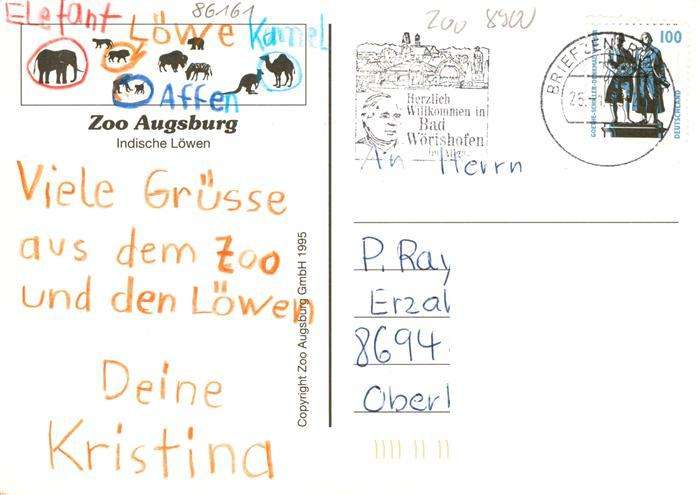 86161
Elefant Löwe Kamel
Affen
Zoo Augsburg
Indische Löwen
Viele Grüsse
aus dem Zoo
und den Löwen
Deine
Kristina
Copyright Zoo Augsburg GmbH 1995
Zoo 8900
Herzlich
Willkommen in
Bad
Wörishofen
im Allgäu
BRIEFZENTR
25.
100
GOETHE-SCHILLER-DENKMAL
DEUTSCHLAND
An Herrn
P. Ray
Erzal
8694
Oberl